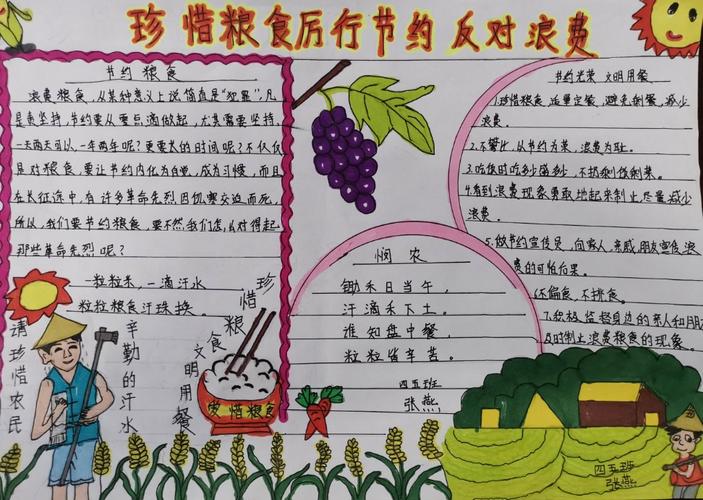 珍惜粮食厉行节约 反对浪费
节约粮食
浪费粮食，从某种意义上说简直是“犯罪”，凡
是贵坚持，节约要从点滴做起，尤其需要坚持，
一天两天可以，一年两年呢？更要大的时间呢？不仅仅
是对粮食，要让节约内化为自觉，成为习惯，而且
在长征途中，有许多革命先烈因饥寒交迫而死，
所以，我们要节约粮食，要不然我们怎么对得起
那些革命先烈呢？
一粒粒米，一滴汗水
一粒粒粮食汗珠换。
请珍惜农民
辛勤的汗水
珍惜粮食
文明用餐
爱惜粮食
悯农
锄禾日当午，
汗滴禾下土。
谁知盘中餐，
粒粒皆辛苦。
四五班
张燕
节约光荣 文明用餐
1.珍惜粮食，适量定餐，避免剩餐，减少
浪费。
2.不攀比，以节约为荣，浪费为耻。
3.吃饭时吃多少盛多少，不扔剩饭剩菜。
4.看到浪费现象勇敢地起来制止，尽量减少
浪费。
5.做节约宣传员，向家人、亲戚、朋友宣传浪
费的可怕后果。
6.不偏食，不挑食。
7.积极监督身边的亲人和朋
8.时制止浪费粮食的现象。
四五班
张燕